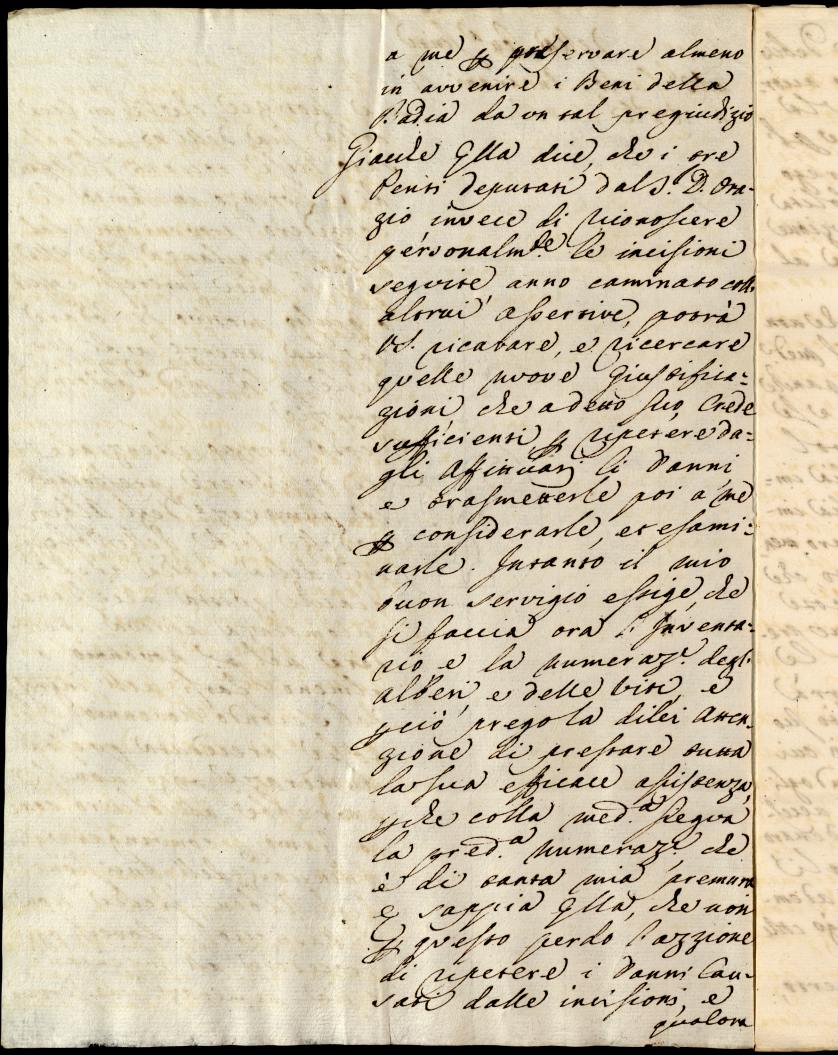 a me ꝑ preservare almeno
in avvenire i Beni della
Badia da un tal pregiudizio
Giacche Ella dice, che i tre
Periti deputati dal S. D. Ora-
zio invece di riconoscere
personalm.te le incisioni
seguite anno caminato coll'
altrui assertive, potrà
VS. ricavare, e ricercare
quelle nuove giustifica-
zioni che a detto suo, Crede
sufficienti ꝑ ripetere da-
gli Affittuarj li danni,
e trasmetterle poi a me
ꝑ considerarle, et esami-
narle. Intanto il mio
buon servigio essige che
si faccia ora l'Inventa-
rio e la numeraz.e degl'
alberi e delle viti, e
ꝑciò prego la di lei Atten-
zione di prestare tutta
la sua efficace assistenza,
ꝑche colla med.a siegua
la pred.a numeraz.e, che
è di tanta mia premura
e sappia Ella, che non
ꝑ questo perdo l'azzione
di ripetere i danni Cau-
sati dalle incisioni, e
qualora